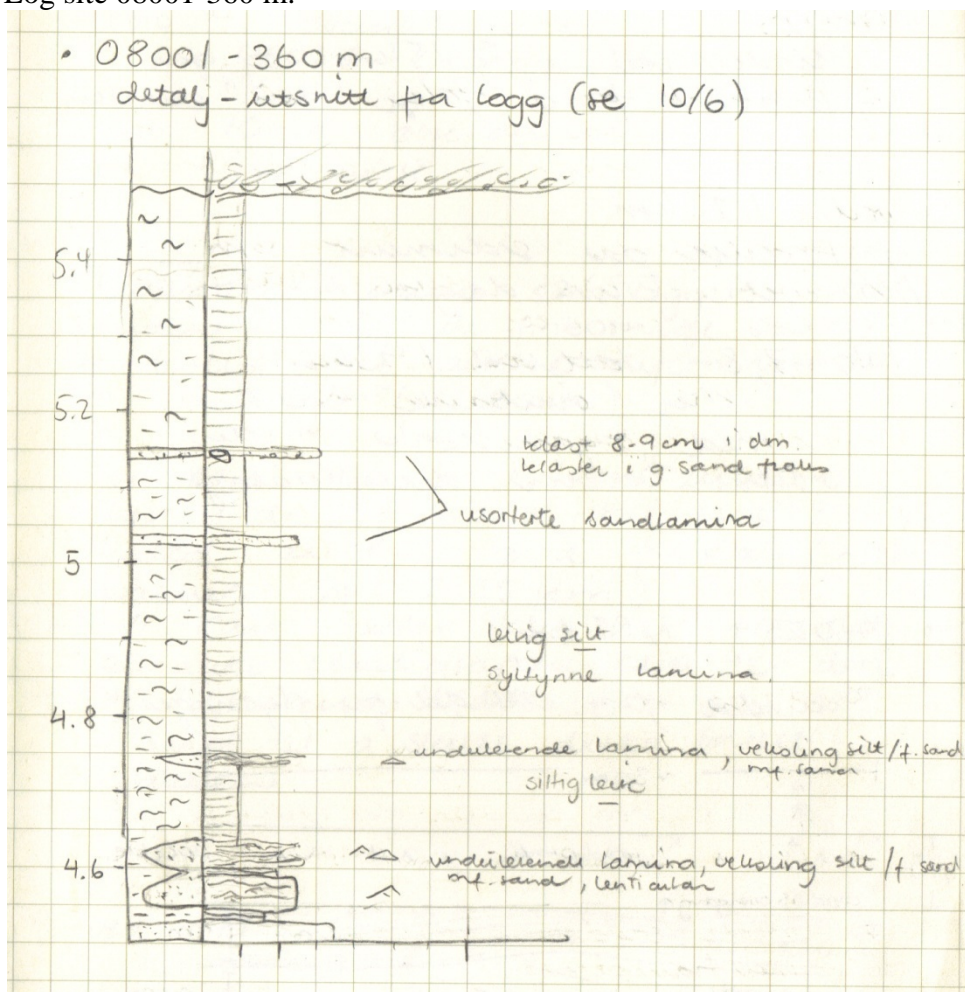 Log site 08001-360 m.
• 08001-360 m
detalj-utsnitt fra logg (se 10/6)
5.4
5.2
klast 8-9 cm i dm.
klaster i g. sand
usorterte sandlamina
5
leirig silt
syltynne lamina.
4.8
undulerende lamina, veksling silt/f. sand
mf. sand
siltig leire
4.6
undulerende lamina, veksling silt/f. sand
mf. sand, lenticular